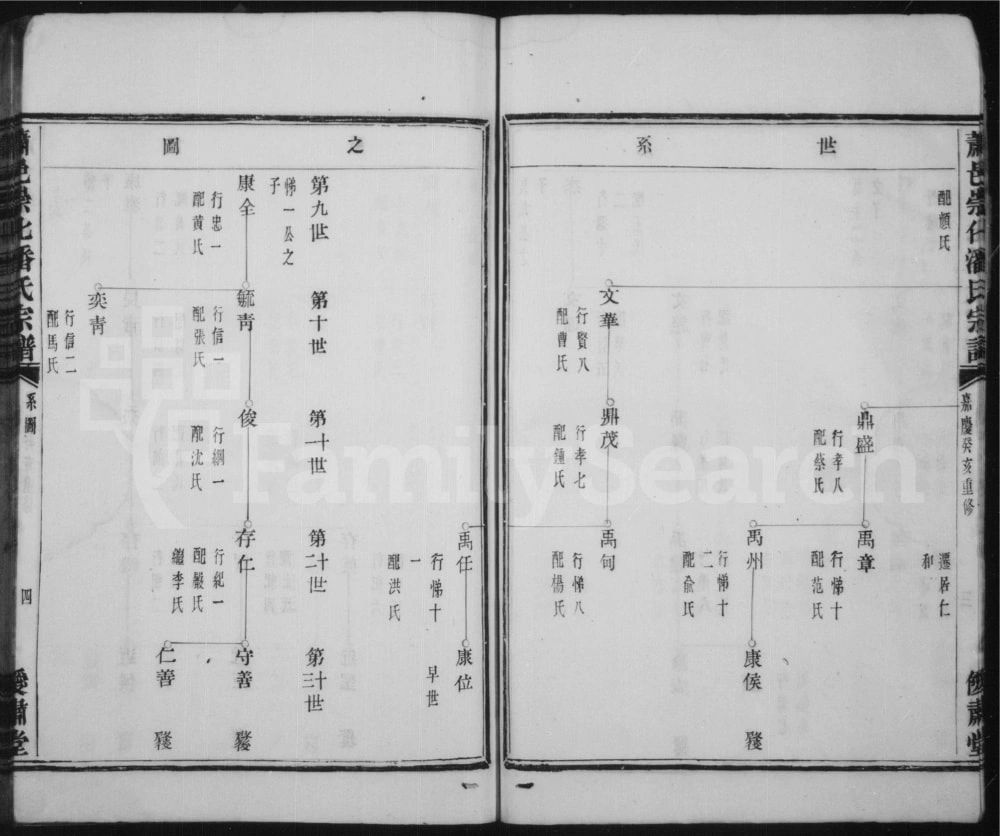 蕭邑崇化潘氏宗譜
嘉慶癸亥重修
儼肅堂
世
系
配顏氏
遷居仁
和
鼎盛
行孝八
配蔡氏
禹章
行悌十
配范氏
禹州
行悌十
二
配俞氏
康侯
文華
行賢八
配曹氏
鼎茂
行孝七
配鍾氏
禹甸
行悌八
配楊氏
之
圖
禹任
行悌十
一
配洪氏
康位
早世
第九世
第十世
第十一世
第十二世
第十三世
悌一公之
子
康全
行忠一
配黃氏
毓青
行信一
配張氏
俊
行綱一
配沈氏
存仁
行紀一
配嚴氏
繼李氏
守善
仁善
奕青
行信二
配馬氏
蕭邑崇化潘氏宗譜
系圖
四
堂
FamilySearch